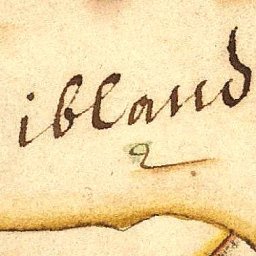 ibland
2